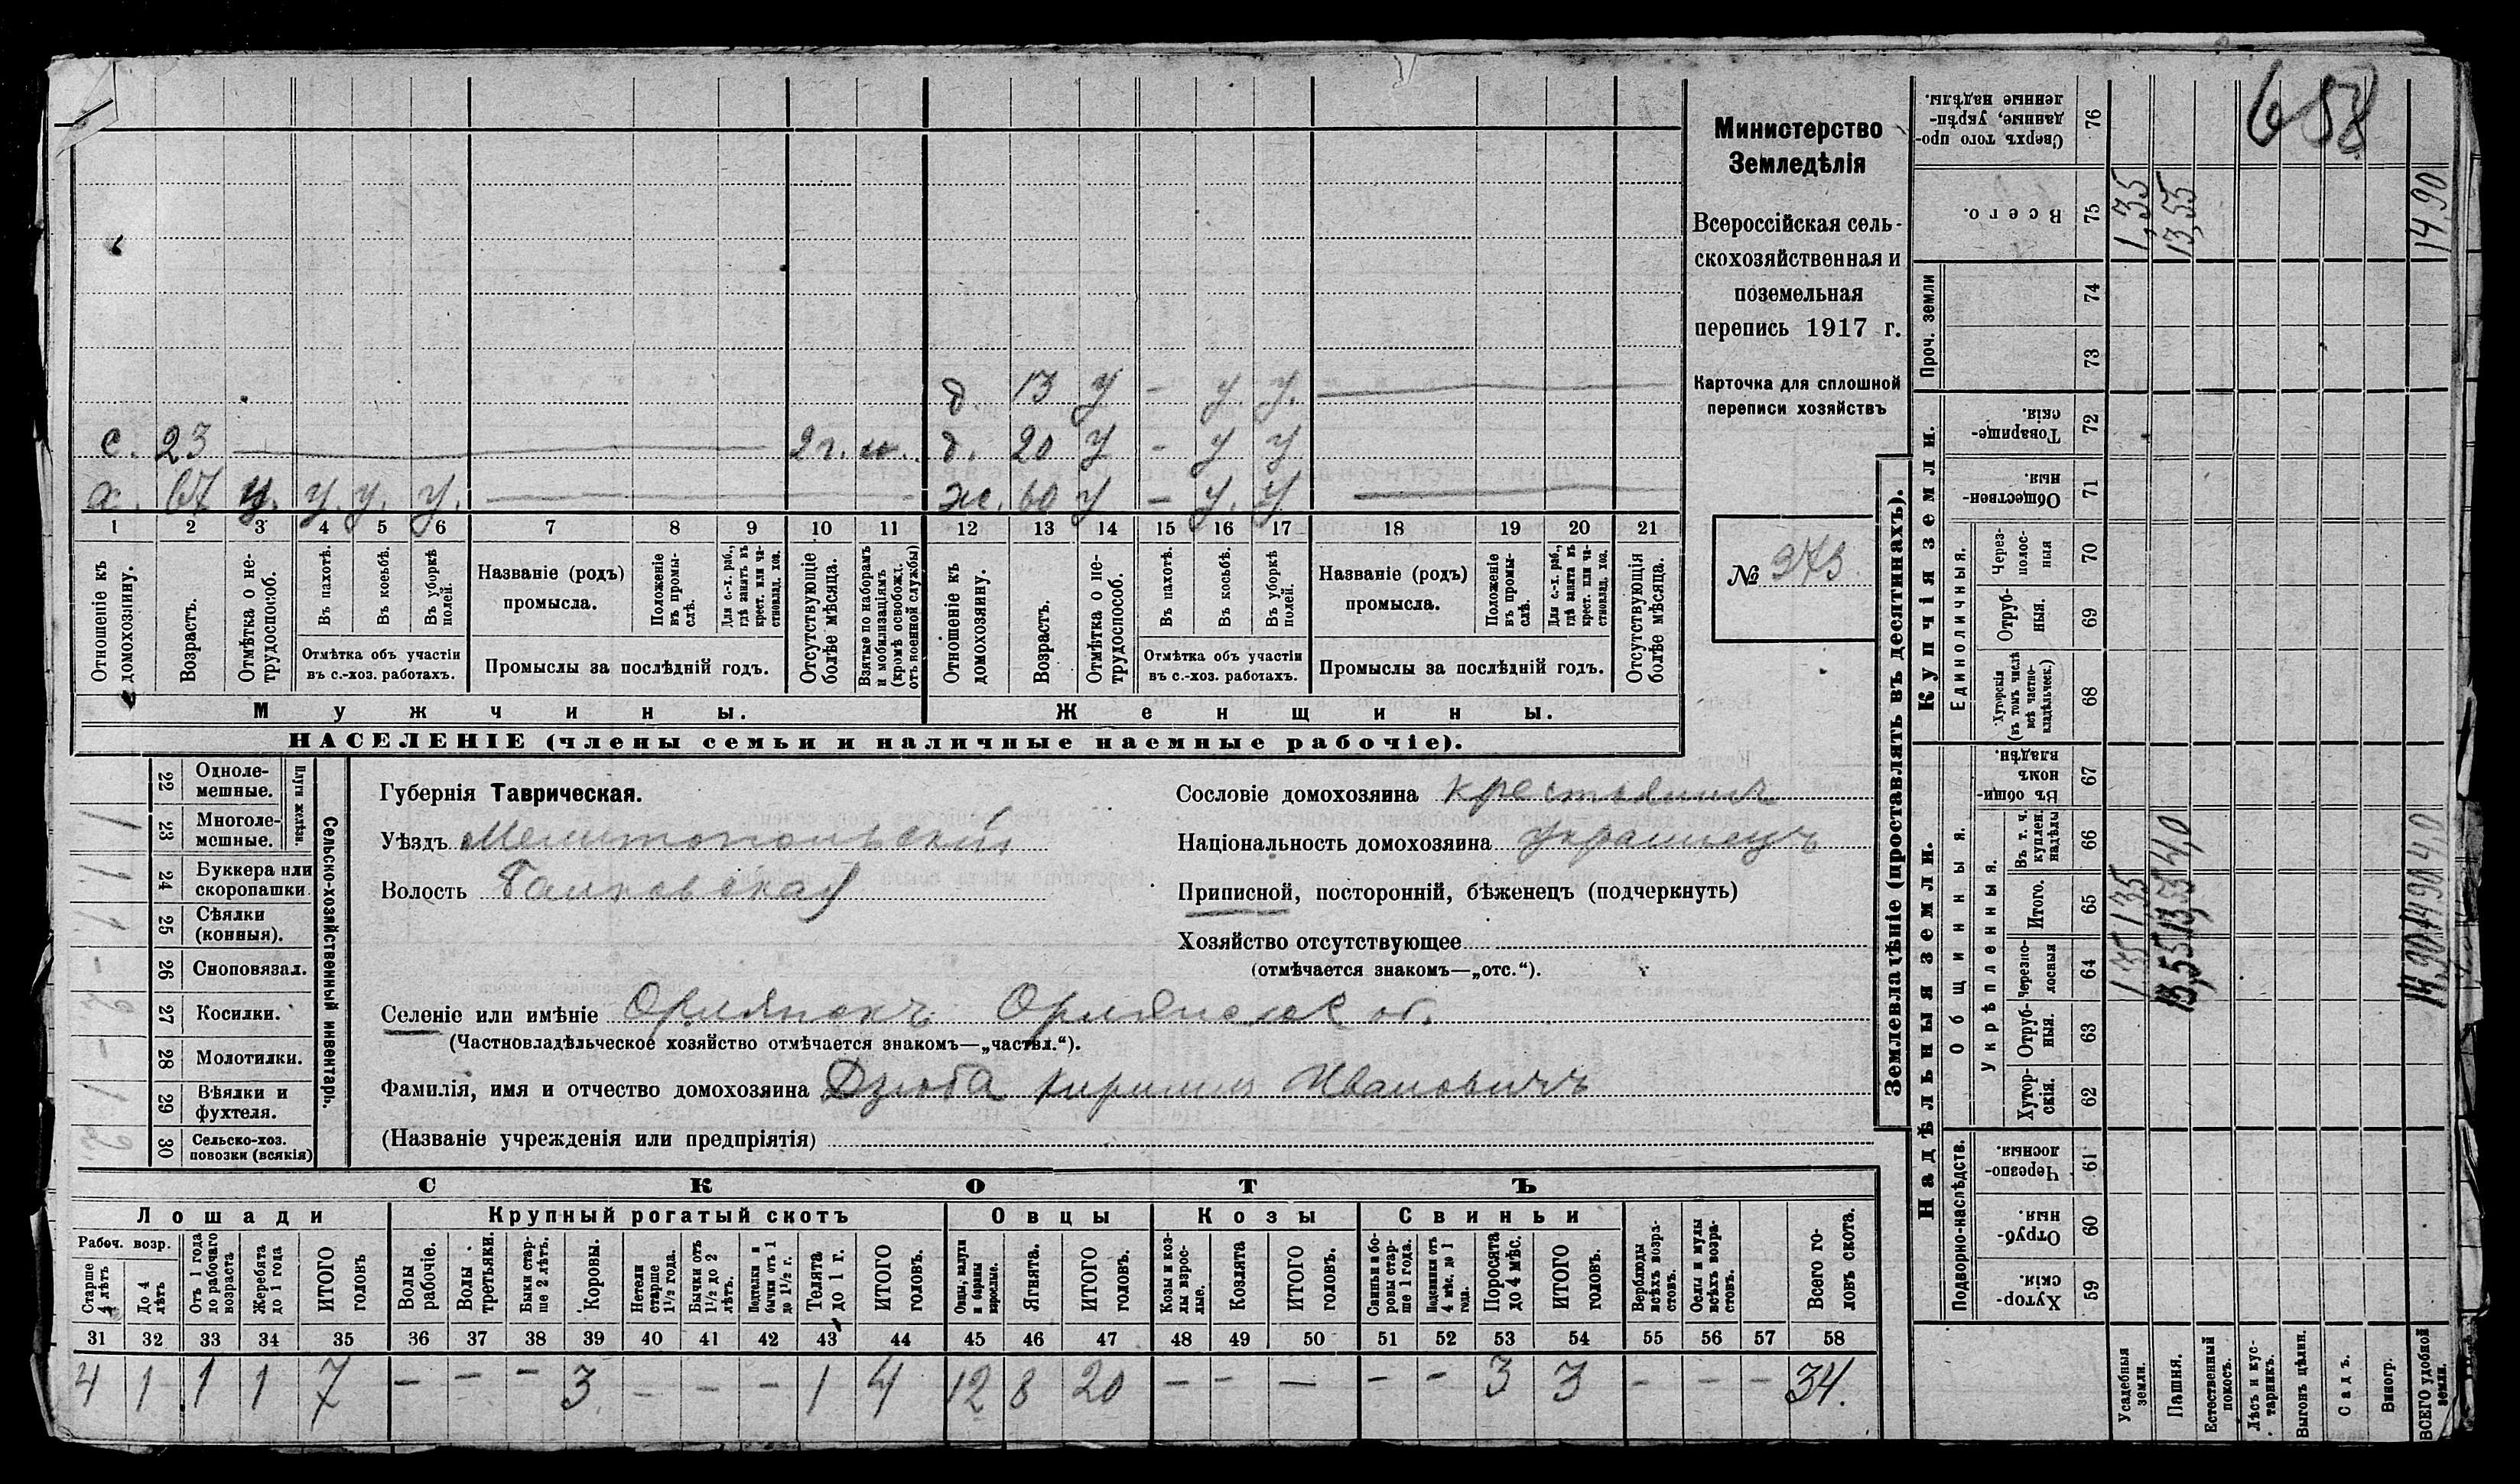 658
Министерство
Земледѣлія
Всероссійская сель-
скохозяйственная и
поземельная
перепись 1917 г.
Карточка для сплошной
переписи хозяйствъ
№ 373
д. 13 у – у. у.
с. 23 2 г. м. д. 20 у – у у
х. 67 у. у. у. у. ж. 60 у – у. у
1 2 3 4 5 6 7 8 9 10 11 12 13 14 15 16 17 18 19 20 21
Отношеніе къ домохозяину.
Возрастъ.
Отмѣтка о не-трудоспособ.
Въ пахотѣ.
Въ косьбѣ.
Въ уборкѣ полей.
Отмѣтка объ участіи
въ с.-хоз. работахъ.
Названіе (родъ)
промысла.
Положеніе въ промы-слѣ.
Для с.-х. раб., гдѣ занятъ въ крест. или ча-стновлад. хоз.
Промыслы за послѣдній годъ.
Отсутствующіе болѣе мѣсяца.
Взятые по наборамъ и мобилизаціямъ (кромѣ освобожд. отъ военной службы)
Отношеніе къ домохозяину.
Возрастъ.
Отмѣтка о не-трудоспособ.
Въ пахотѣ.
Въ косьбѣ.
Въ уборкѣ полей.
Отмѣтка объ участіи
въ с.-хоз. работахъ.
Названіе (родъ)
промысла.
Положеніе въ промы-слѣ.
Для с.-х. раб., гдѣ занята въ крест. или ча-стновлад. хоз.
Промыслы за послѣдній годъ.
Отсутствующія болѣе мѣсяца.
Мужчины. Женщины.
НАСЕЛЕНІЕ (члены семьи и наличные наемные рабочіе).
Сельско-хозяйственный инвентарь.
Плуги желѣзн.
22 Одноле-мешные.
23 Многоле-мешные. 1
24 Буккера или скоропашки 1
25 Сѣялки (конныя). 1
26 Сноповязал. –
27 Косилки.
28 Молотилки. –
29 Вѣялки и фухтеля. 1
30 Сельско-хоз. повозки (всякія)
Губернія Таврическая.
Уѣздъ Мелитопольскій
Волость
Сословіе домохозяина крестьянинъ
Національность домохозяина украинецъ
Приписной, посторонній, бѣженецъ (подчеркнуть)
Хозяйство отсутствующее
(отмѣчается знакомъ—„отс.“).
Селеніе или имѣніе Орлянскъ Орлянское об.
(Частновладѣльческое хозяйство отмѣчается знакомъ—„частвл.“).
Фамилія, имя и отчество домохозяина Дзюба Кириллъ Ивановичъ
(Названіе учрежденія или предпріятія)
СКОТЪ
Лошади Крупный рогатый скотъ Овцы Козы Свиньи
Рабоч. возр.
Старше 4 лѣтъ
До 4 лѣтъ
Отъ 1 года до рабочаго возраста
Жеребята до 1 года
ИТОГО головъ
Волы рабочіе.
Волы третьяки.
Быки стар-ше 2 лѣтъ.
Коровы.
Нетели старше 1½ года.
Бычки отъ 1½ до 2 лѣтъ.
Подтелки и бычки отъ 1 до 1½ г.
Телята до 1 г.
ИТОГО головъ.
Овцы, валухи и бараны взрослые.
Ягнята.
ИТОГО головъ.
Козы и коз-лы взрос-лые.
Козлята
ИТОГО головъ.
Свиньи и бо-ровы стар-ше 1 года.
Подсвинки отъ 4 мѣс. до 1 года.
Поросята до 4 мѣс.
ИТОГО головъ.
Верблюды всѣхъ возра-стовъ.
Ослы и мулы всѣхъ возра-стовъ.
Всего го-ловъ скота.
31 32 33 34 35 36 37 38 39 40 41 42 43 44 45 46 47 48 49 50 51 52 53 54 55 56 57 58
4 1 1 1 7 – – – 3 – – – 1 4 12 8 20 – – – – – 3 3 – – – 34.
Землевладѣніе (проставлять въ десятинахъ).
Надѣльныя земли. Купчія земли. Проч. земли
Подворно-наслѣдств.
Общинныя.
Укрѣпленныя.
Единоличныя.
Сверхъ того про-данные, укрѣп-ленные надѣлы. 76
Всего. 75 1,35 13,55 14,90
74
73
Товарище-скія. 72
Обществен-ныя 71
Через-полос-ныя 70
Отруб-ныя. 69
Хуторскія (въ томъ числѣ всѣ частно-владѣльческ.) 68
Въ общин-номъ владѣн. 67
Въ т. ч. куплен. надѣлы 66 4,0 4,0
Итого. 65 1 35 14 90
Черезпо-лосныя 64 1 35 13,55 14,90
Отруб-ныя. 63
Хутор-скія. 62
Черезпо-лосныя. 61
Отруб-ныя. 60
Хутор-скія. 59
Усадебныя земли.
Пашня.
Естественный покосъ.
Лѣсъ и кус-тарникъ.
Выгонъ цѣлин.
Садъ.
Виногр.
ВСЕГО удобной земли.